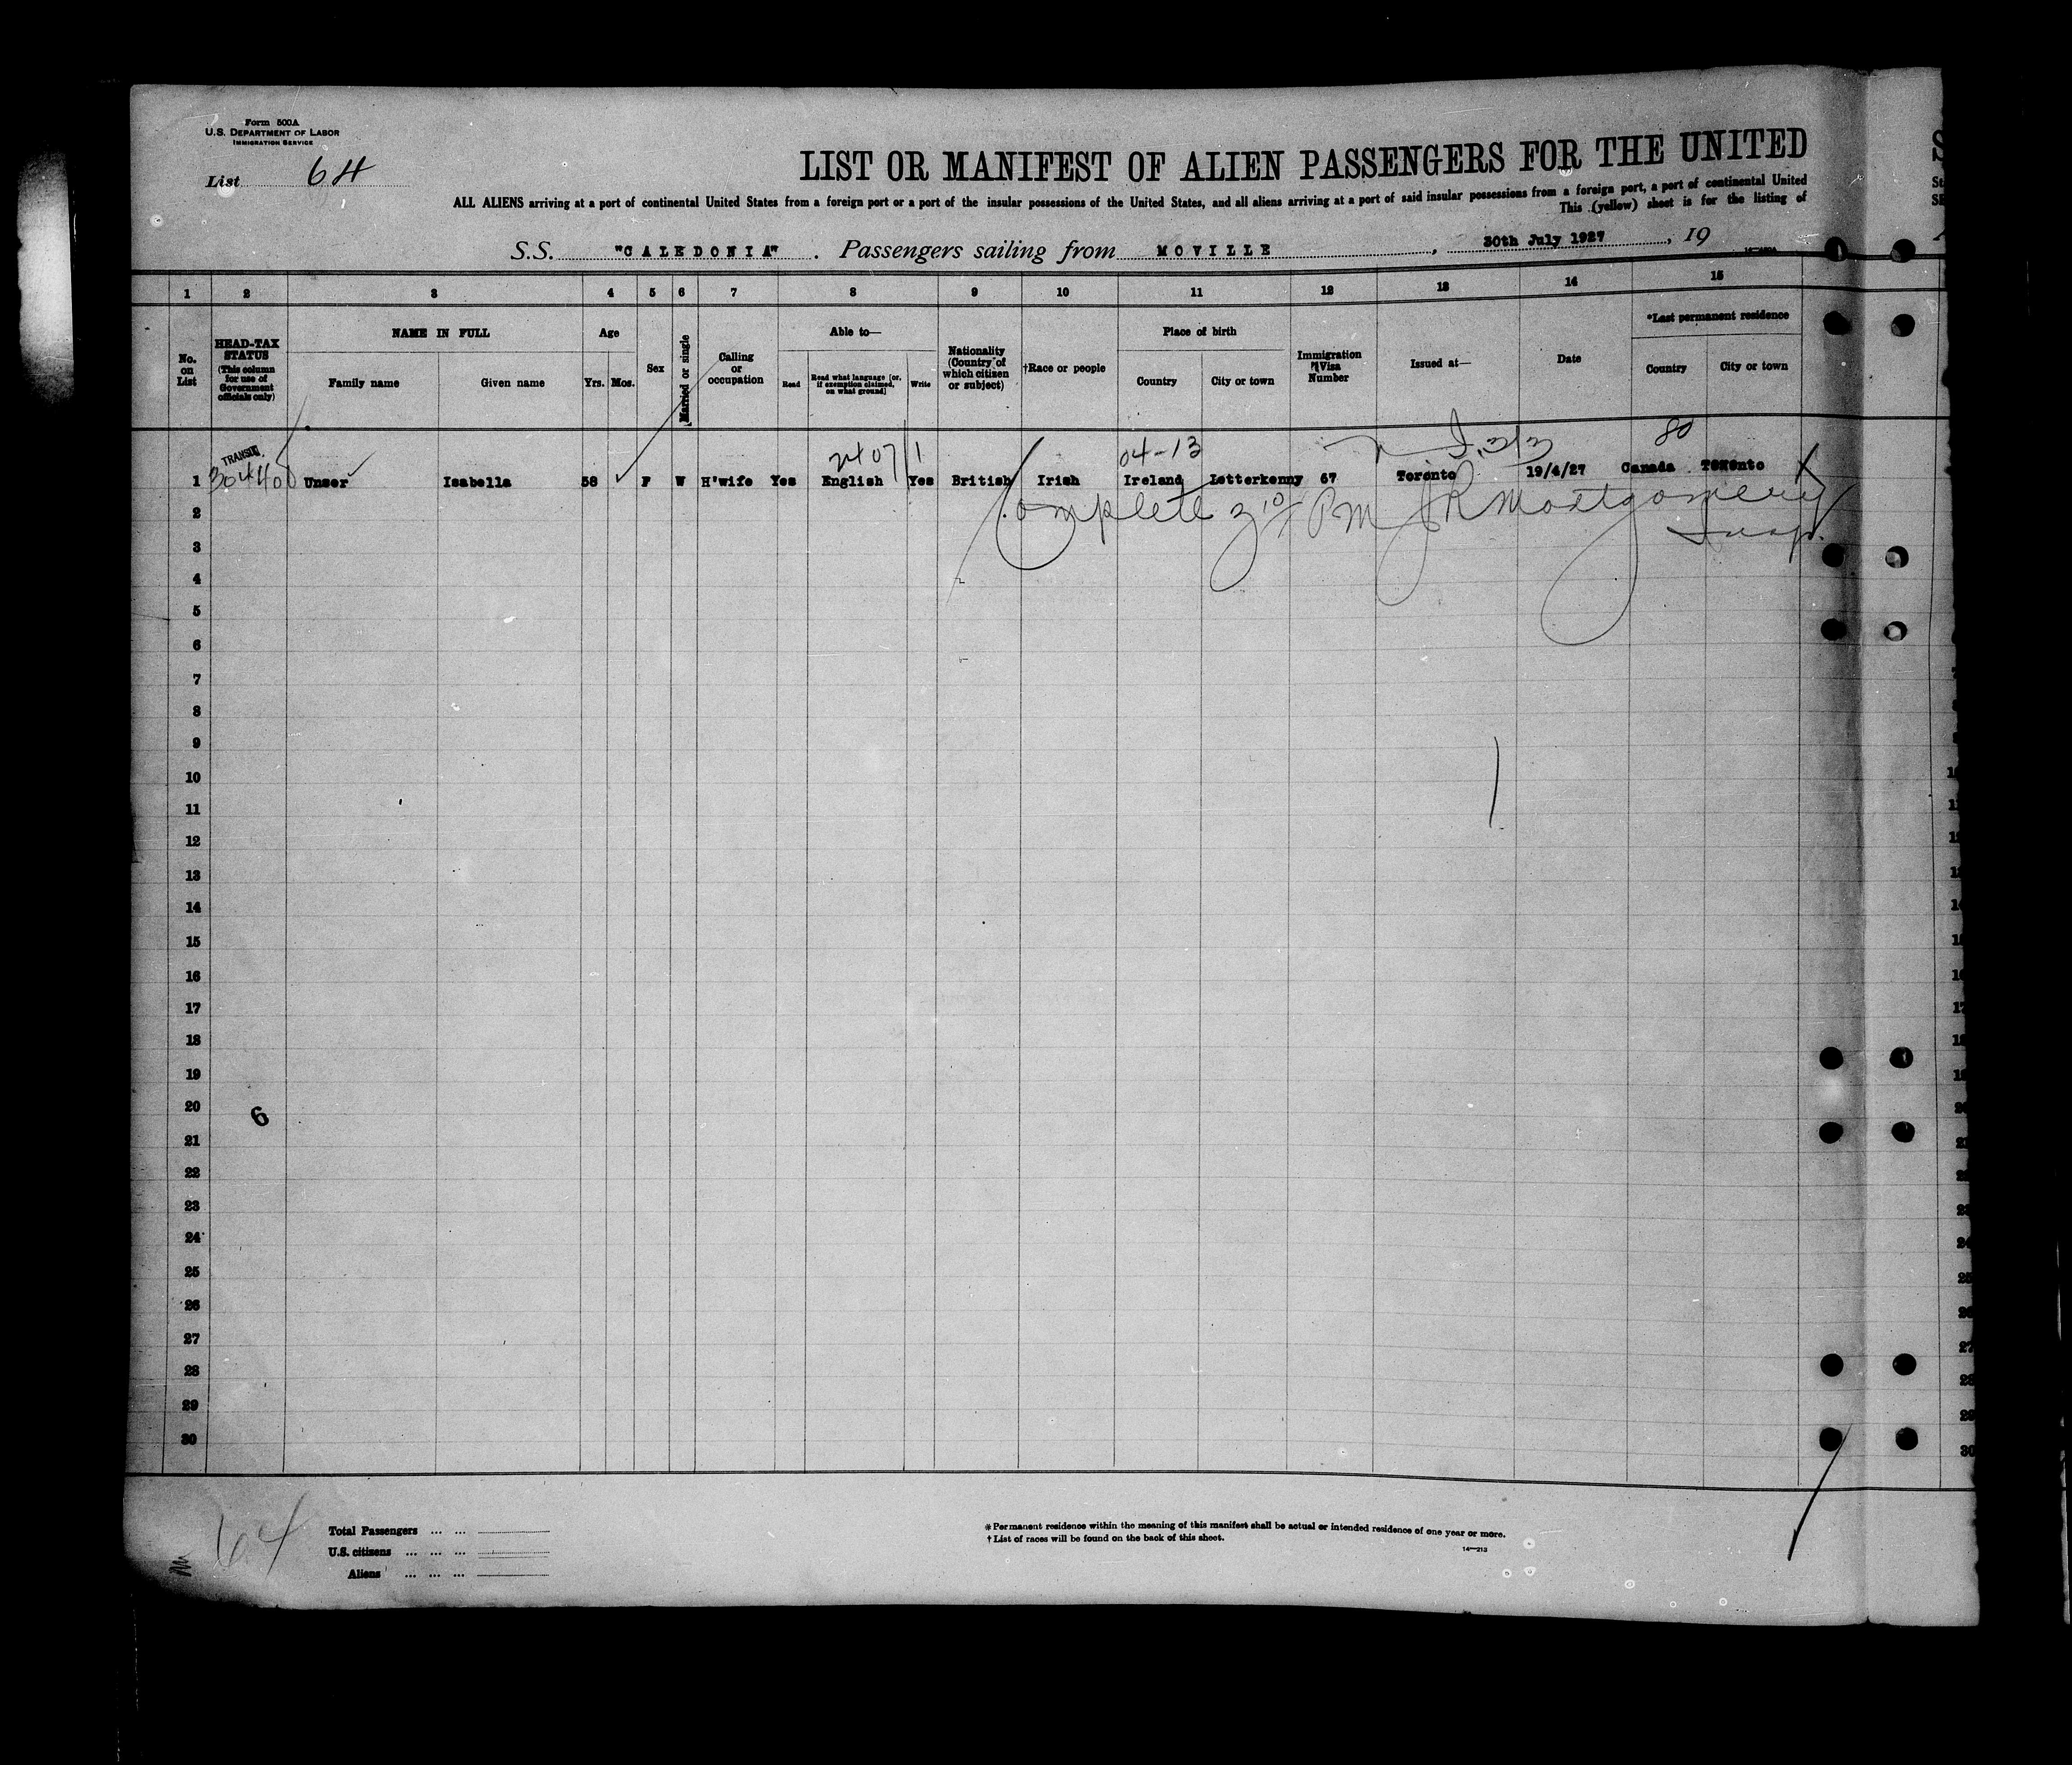 Form 500A
U.S. DEPARTMENT OF LABOR
IMMIGRATION SERVICE
List 64
LIST OR MANIFEST OF ALIEN PASSENGERS FOR THE UNITED
ALL ALIENS arriving at a port of continental United States from a foreign port or a port of the insular possessions of the United States, and all aliens arriving at a port of said insular possessions from a foreign port, a port of continental United
This (yellow) sheet is for the listing of
S.S. "CALEDONIA". Passengers sailing from MOVILLE, 30th July 1927, 19
1 2 3 4 5 6 7 8 9 10 11 12 13 14 15
No. on List
HEAD-TAX STATUS (This column for use of Government officials only)
NAME IN FULL
Family name Given name
Age
Yrs. Mos.
Sex
Married or single
Calling or occupation
Able to—
Read Read what language [or, if exemption claimed, on what ground] Write
Nationality (Country of which citizen or subject)
†Race or people
Place of birth
Country City or town
Immigration Visa Number
Issued at—
Date
*Last permanent residence
Country City or town
TRANSIT 04-13 80
1 Unser Isabella 58 F W H'wife Yes English Yes British Irish Ireland Letterkenny 67 Toronto 19/4/27 Canada Toronto
2 Complete 3 10 PM JR Montgomery
Insp.
3
4
5
6
7
8
9
10
11
12
13
14
15
16
17
18
19
20
6
21
22
23
24
25
26
27
28
29
30
64
Total Passengers ... ...
U.S. citizens ... ... ...
Aliens ... ... ...
* Permanent residence within the meaning of this manifest shall be actual or intended residence of one year or more.
† List of races will be found on the back of this sheet.
14—213